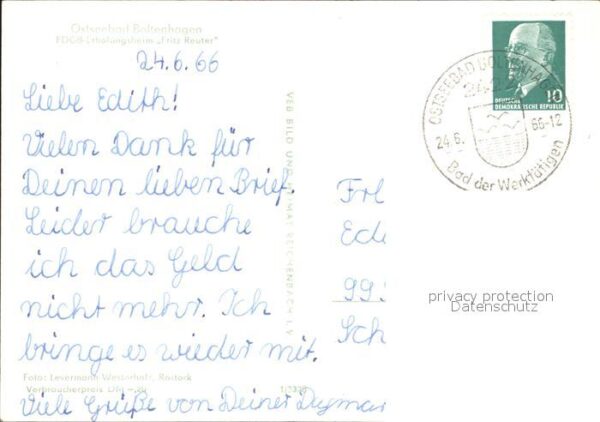 Ostseebad Boltenhagen
FDGB-Erholungsheim „Fritz Reuter"
24.6.66
Liebe Edith!
Vielen Dank für
Deinen lieben Brief.
Leider brauche
ich das Geld
nicht mehr. Ich
bringe es wieder mit.
Foto: Levermann Westerholz, Rostock
Verbraucherpreis DM -,20
1/3328
Viele Grüße von Deiner Dagmar
VEB BILD UND HEIMAT REICHENBACH I.V.
OSTSEEBAD BOLTENHAGEN
24.6. 66-12
Bad der Werktätigen
10
DEUTSCHE
DEMOKRATISCHE REPUBLIK
Frl
Ede
99
Sch
privacy protection
Datenschutz